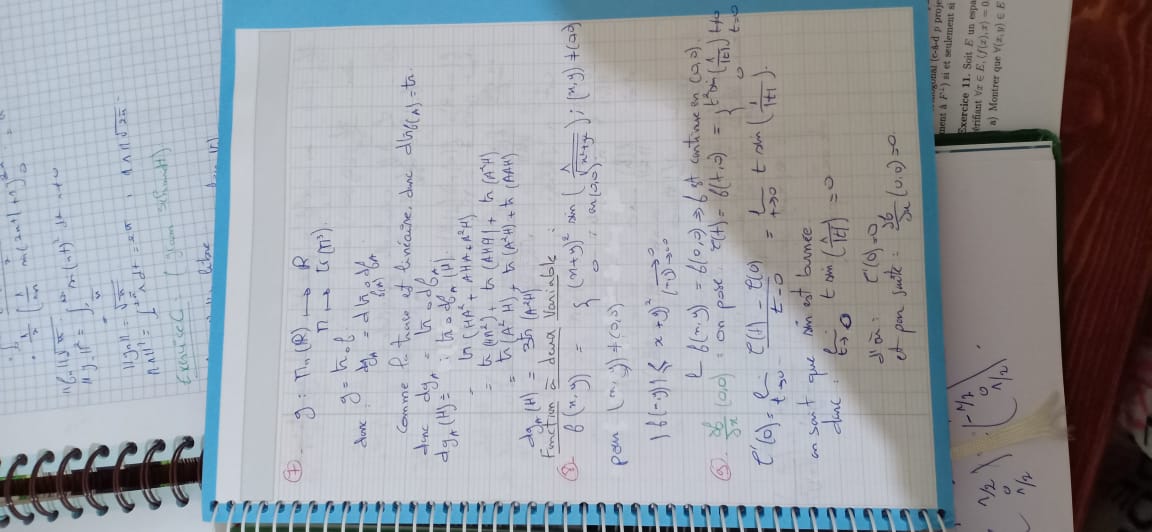 Exercice C : (Gram Schmidt)
libre
⑦ g : Mn(R) ⟼ R
M ⟼ tr(M³).
g = tr∘f
donc : dg_A = dtr_{f(A)} ∘ df_A
Comme la trace est linéaire, donc dtr_{f(A)} = tr.
donc dg_A = tr∘df_A
dg_A(H) = : tr∘df_A(H)
= tr(HA² + AHA + A²H)
= tr(HA²) + tr(AHA) + tr(A²H)
= tr(A²H) + tr(A²H) + tr(AAH)
dg_A(H) = 3tr(A²H)
Function à deux Variable :
⑧ f(x,y) = { (x+y)² sin(1/√(x²+y²)) ; (x,y) ≠ (0,0)
0 : en (0,0).
pour (x,y) ≠ (0,0)
|f(x,y)| ≤ (x+y)² ⟶ 0
f(x,y) = f(0,0) ⇒ f est continue en (0,0).
⑨ ∂f/∂x (0,0) : on pose : φ(t) = f(t,0) = { t² sin(1/|t|) t≠0
0 t=0
φ'(0) = lim t→0 (φ(t) - φ(0))/(t-0) = lim t→0 t sin(1/|t|).
on sait que sin est bornée
donc : lim t→0 t sin(1/|t|) = 0
d'où : φ'(0) = 0
et par suite : ∂f/∂x (0,0) = 0.
1/2
0
1/2
-1/2
0
1/2
ment à F⊥) si et seulement si
Exercice 11. Soit E un espa
érifiant ∀x ∈ E, ⟨f(x), x⟩ = 0
a) Montrer que ∀(x, y) ∈ E